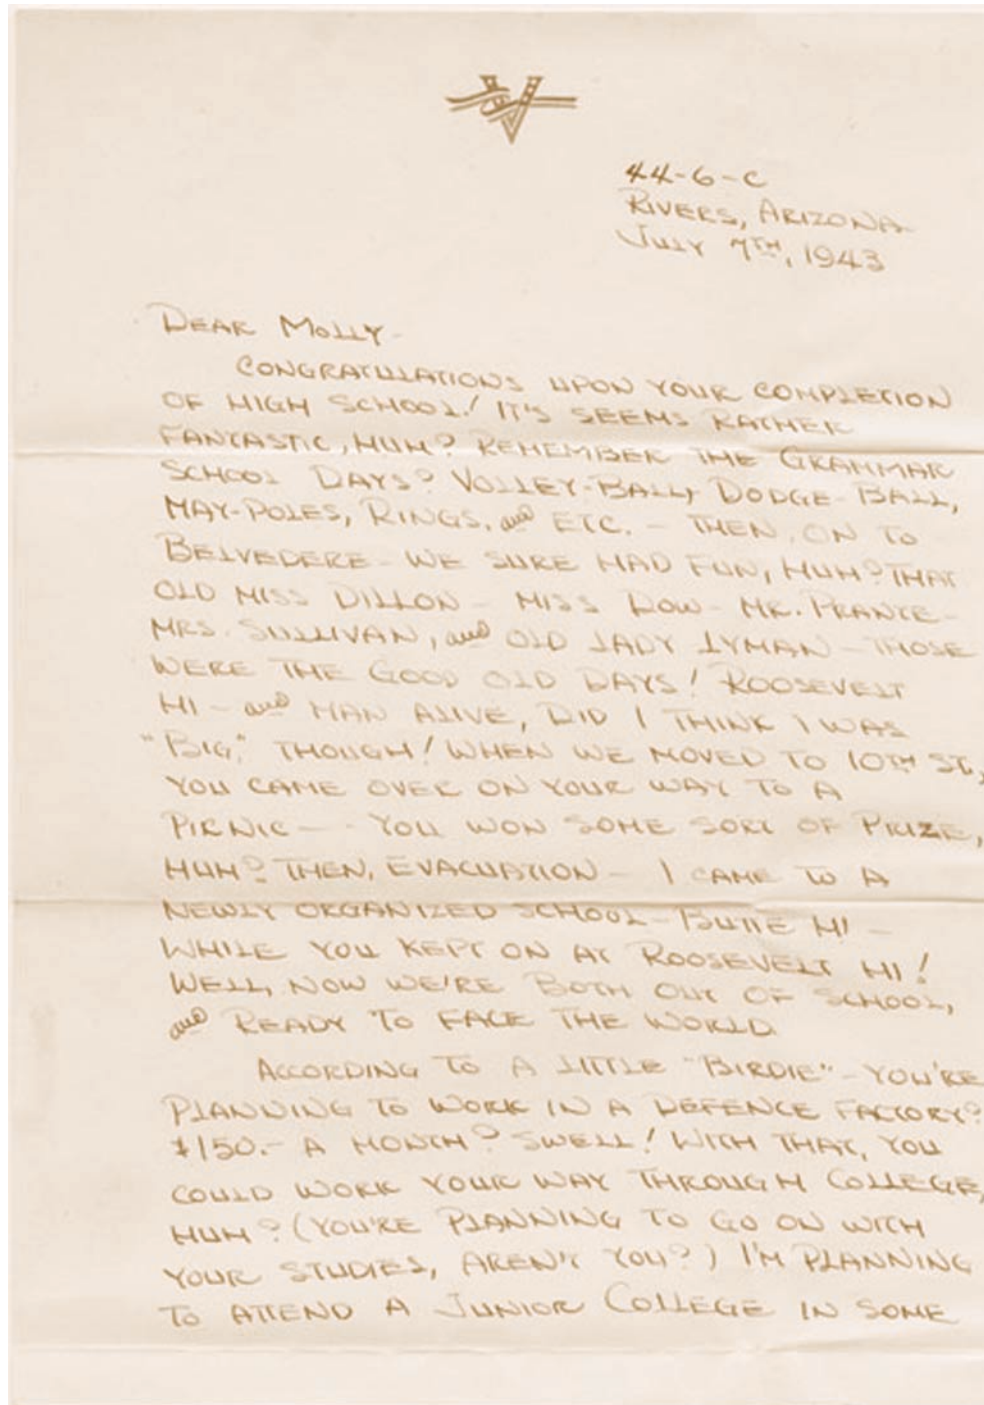 44-6-C
RIVERS, ARIZONA
JULY 7TH, 1943
DEAR MOLLY-
CONGRATULATIONS UPON YOUR COMPLETION
OF HIGH SCHOOL! IT'S SEEMS RATHER
FANTASTIC, HUH? REMEMBER THE GRAMMAR
SCHOOL DAYS? VOLLEY-BALL, DODGE-BALL,
MAY-POLES, RINGS, and ETC. - THEN, ON TO
BELVEDERE - WE SURE HAD FUN, HUH? THAT
OLD MISS DILLON - MISS ROW - MR. PRANTE -
MRS. SULLIVAN, and OLD LADY LYMAN - THOSE
WERE THE GOOD OLD DAYS! ROOSEVELT
HI - and MAN ALIVE, DID I THINK I WAS
"BIG," THOUGH! WHEN WE MOVED TO 10TH ST.,
YOU CAME OVER ON YOUR WAY TO A
PICNIC -- YOU WON SOME SORT OF PRIZE,
HUH? THEN, EVACUATION - I CAME TO A
NEWLY ORGANIZED SCHOOL - BUTTE HI -
WHILE YOU KEPT ON AT ROOSEVELT HI!
WELL, NOW WE'RE BOTH OUT OF SCHOOL,
and READY TO FACE THE WORLD.
ACCORDING TO A LITTLE "BIRDIE" - YOU'RE
PLANNING TO WORK IN A DEFENCE FACTORY?
$150.- A MONTH? SWELL! WITH THAT, YOU
COULD WORK YOUR WAY THROUGH COLLEGE,
HUH? (YOU'RE PLANNING TO GO ON WITH
YOUR STUDIES, AREN'T YOU?) I'M PLANNING
TO ATTEND A JUNIOR COLLEGE IN SOME